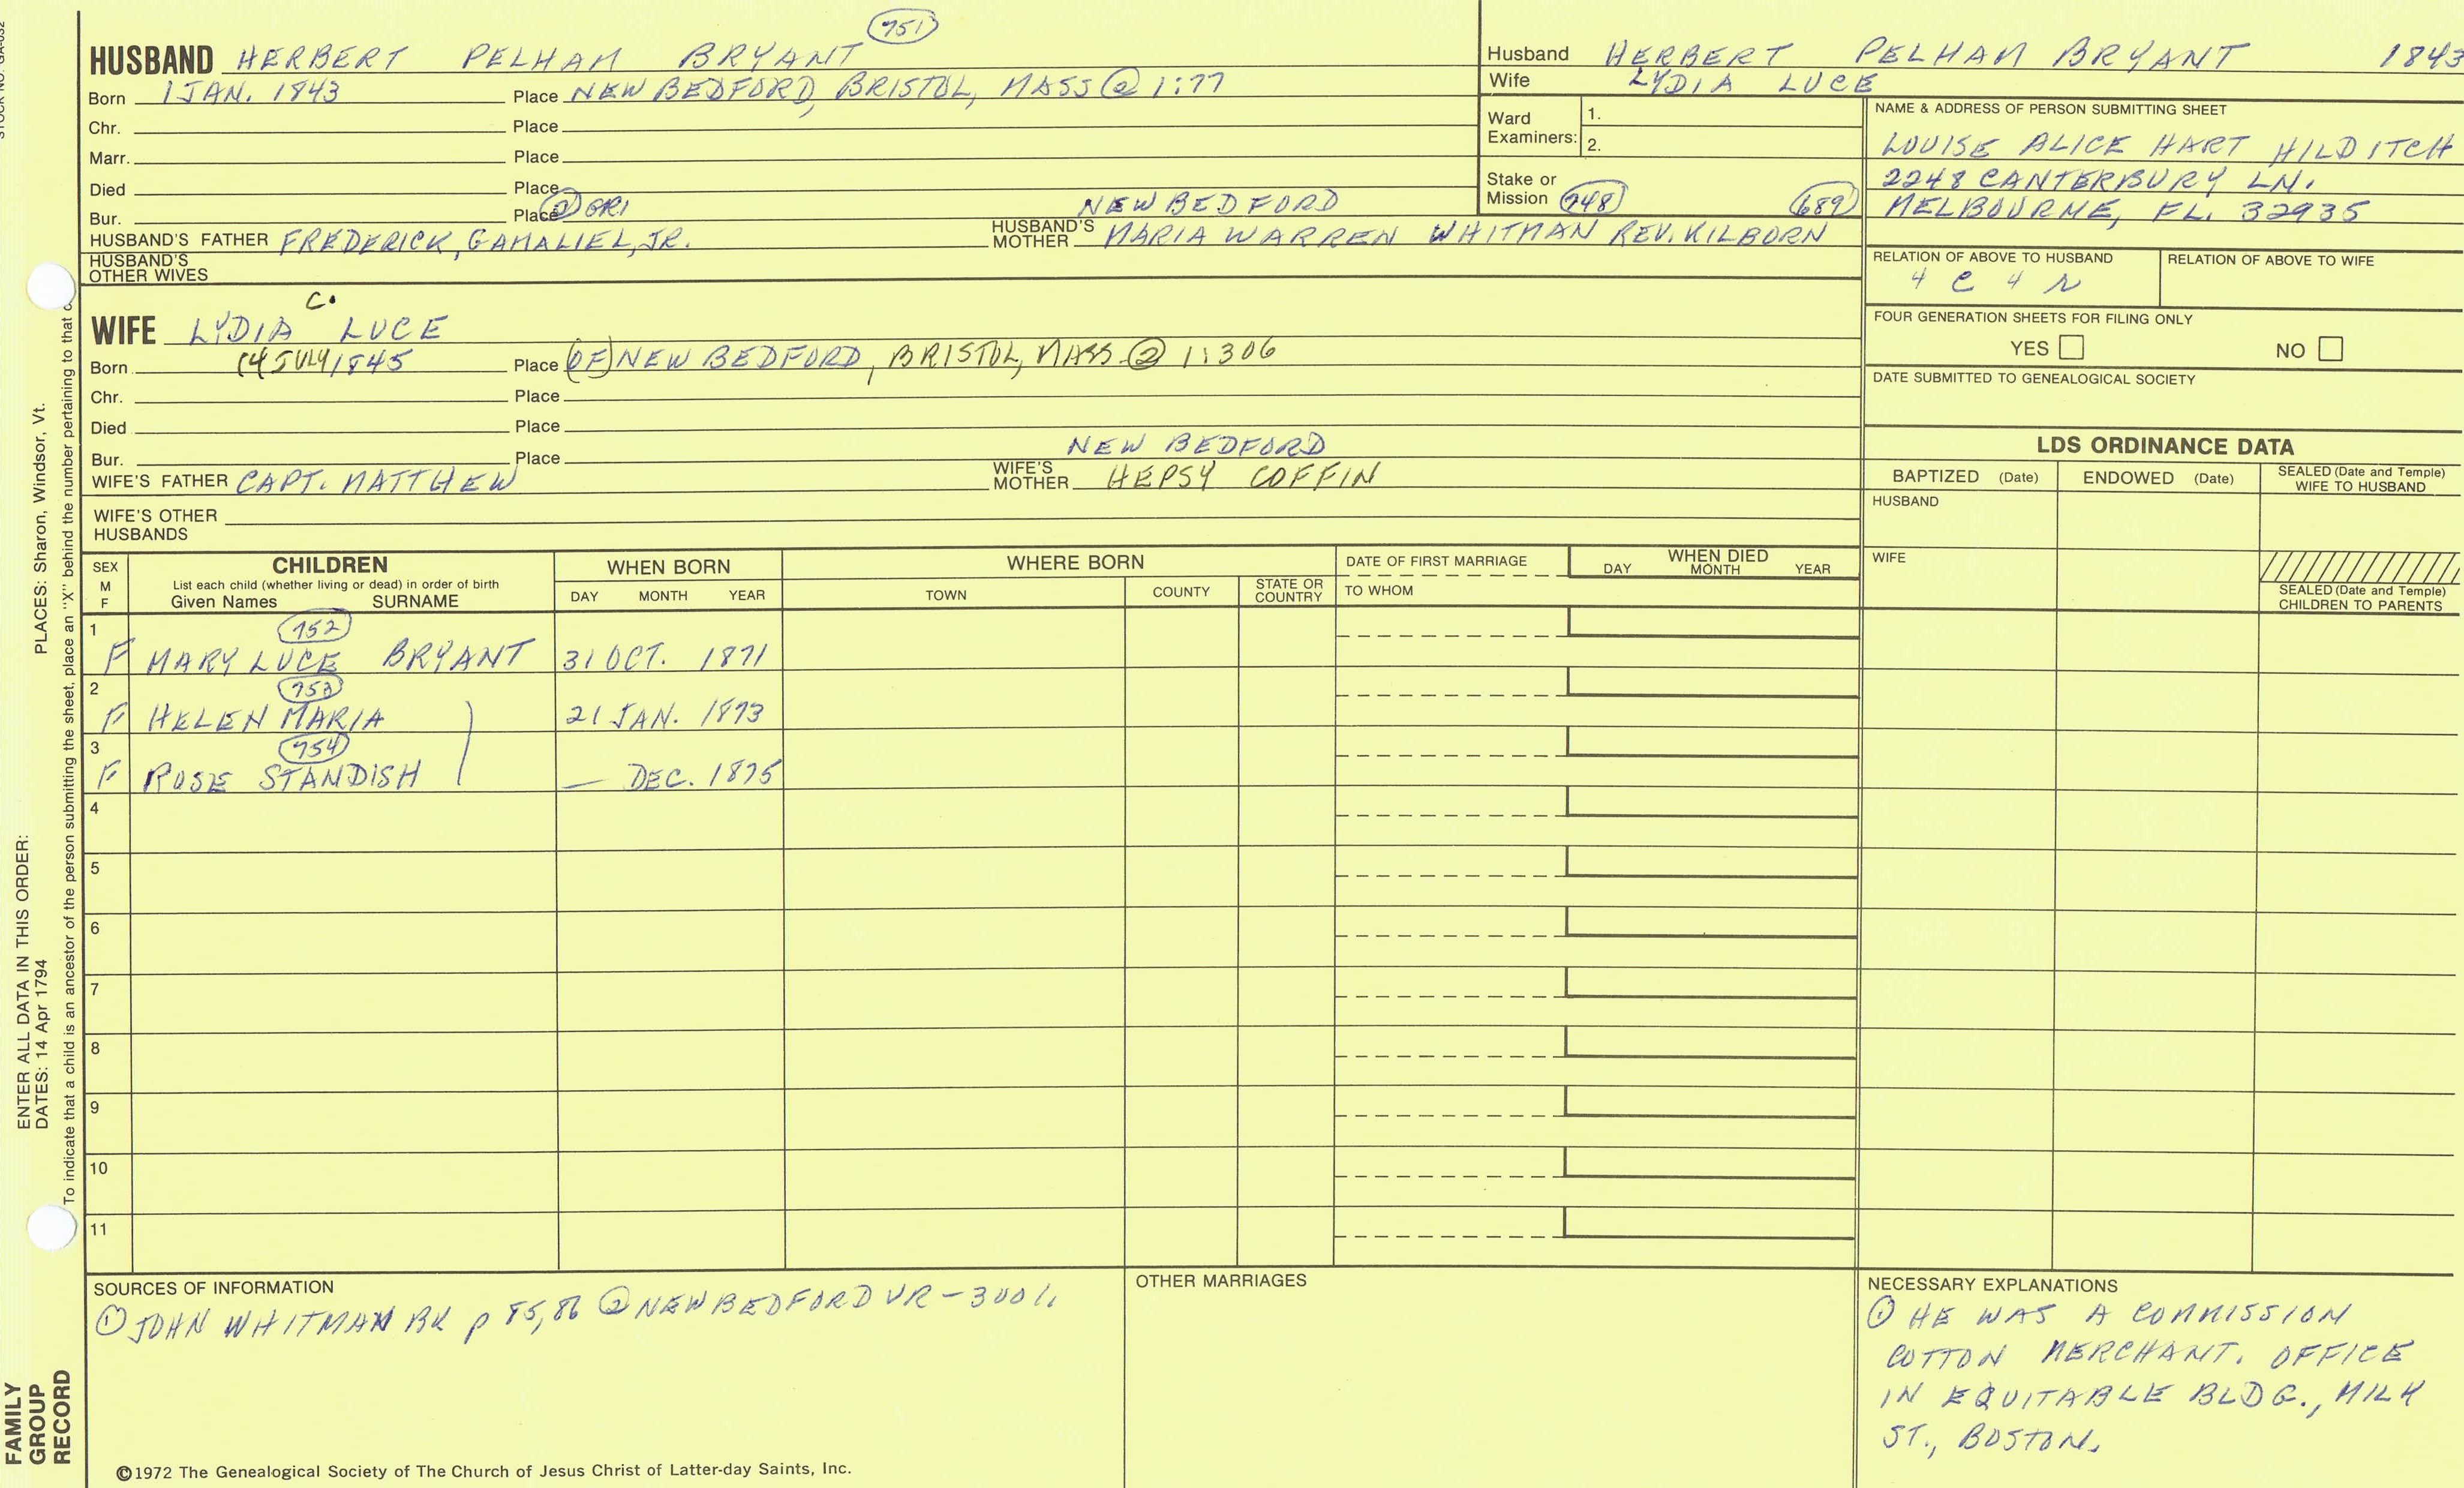 STOCK NO. GA-032
751
HUSBAND HERBERT PELHAM BRYANT
Born 1 JAN. 1843 Place NEW BEDFORD, BRISTOL, MASS ② 1:77
Chr. Place
Marr. Place
Died Place
Bur. Place ② GR1 NEW BEDFORD
HUSBAND'S FATHER FREDERICK, GAMALIEL, JR. HUSBAND'S MOTHER MARIA WARREN WHITMAN REV. KILBORN
HUSBAND'S OTHER WIVES
C.
WIFE LYDIA LUCE
Born 14 JULY 1845 Place (OF) NEW BEDFORD, BRISTOL, MASS ② 1:306
Chr. Place
Died Place
Bur. Place NEW BEDFORD
WIFE'S FATHER CAPT. MATTHEW WIFE'S MOTHER HEPSY COFFIN
WIFE'S OTHER HUSBANDS
Husband HERBERT PELHAM BRYANT 1843
Wife LYDIA LUCE
Ward Examiners: 1. 2.
Stake or Mission 748 689
NAME & ADDRESS OF PERSON SUBMITTING SHEET
LOUISE ALICE HART HILDITCH
2248 CANTERBURY LN.
MELBOURNE, FL. 32935
RELATION OF ABOVE TO HUSBAND RELATION OF ABOVE TO WIFE
4 C 4 R
FOUR GENERATION SHEETS FOR FILING ONLY
YES NO
DATE SUBMITTED TO GENEALOGICAL SOCIETY
LDS ORDINANCE DATA
BAPTIZED (Date) ENDOWED (Date) SEALED (Date and Temple) WIFE TO HUSBAND
HUSBAND
WIFE
SEALED (Date and Temple) CHILDREN TO PARENTS
SEX M F CHILDREN WHEN BORN WHERE BORN DATE OF FIRST MARRIAGE WHEN DIED
List each child (whether living or dead) in order of birth
Given Names SURNAME DAY MONTH YEAR TOWN COUNTY STATE OR COUNTRY TO WHOM DAY MONTH YEAR
1 752
F MARY LUCE BRYANT 31 OCT. 1871
2 753
F HELEN MARIA 21 JAN. 1873
3 754
F ROSE STANDISH — DEC. 1875
4
5
6
7
8
9
10
11
SOURCES OF INFORMATION
① JOHN WHITMAN BK p 85,86 ② NEW BEDFORD VR - 300
OTHER MARRIAGES
NECESSARY EXPLANATIONS
① HE WAS A COMMISSION
COTTON MERCHANT. OFFICE
IN EQUITABLE BLDG., MILK
ST., BOSTON.
©1972 The Genealogical Society of The Church of Jesus Christ of Latter-day Saints, Inc.
FAMILY GROUP RECORD
ENTER ALL DATA IN THIS ORDER:
DATES: 14 Apr 1794 PLACES: Sharon, Windsor, Vt.
To indicate that a child is an ancestor of the person submitting the sheet, place an "X" behind the number pertaining to that